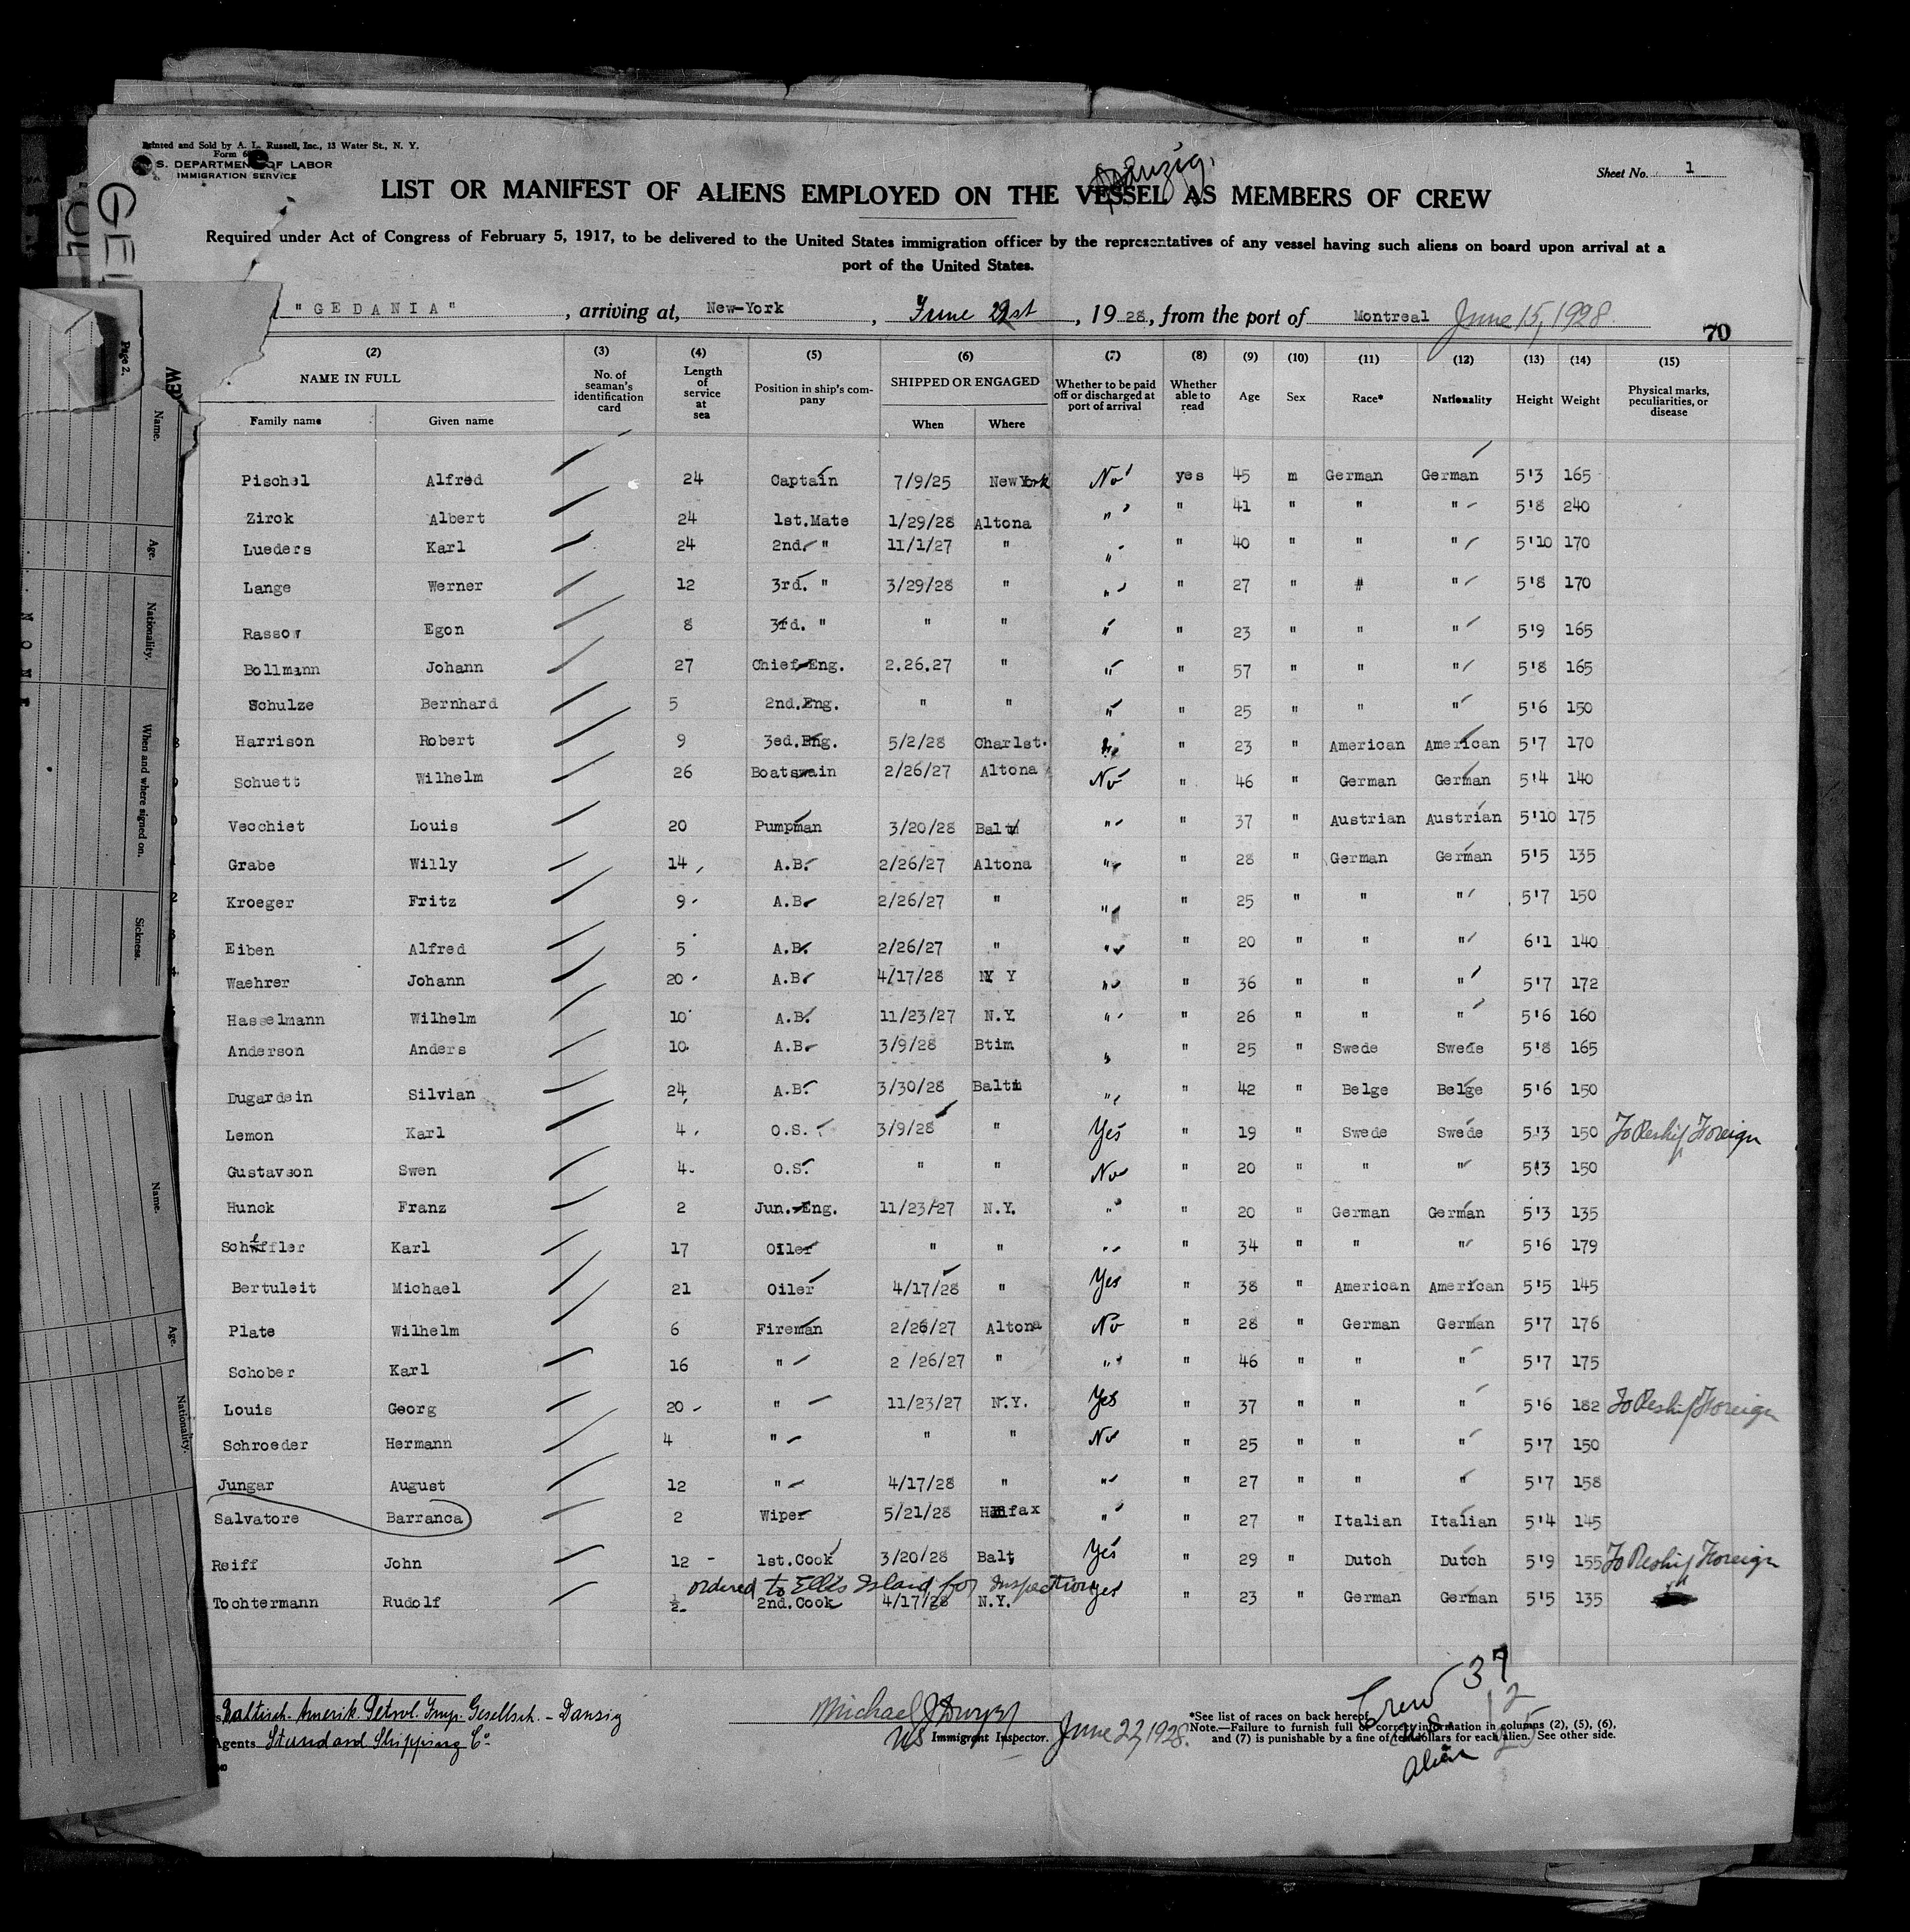 Printed and Sold by A. L. Russell, Inc., 13 Water St., N. Y.
Form
S. DEPARTMENT OF LABOR
IMMIGRATION SERVICE
Danzig.
Sheet No. 1
LIST OR MANIFEST OF ALIENS EMPLOYED ON THE VESSEL AS MEMBERS OF CREW
Required under Act of Congress of February 5, 1917, to be delivered to the United States immigration officer by the representatives of any vessel having such aliens on board upon arrival at a
port of the United States.
"GEDANIA", arriving at, New-York, June 21st, 1928, from the port of Montreal June 15, 1928.
70
(2) (3) (4) (5) (6) (7) (8) (9) (10) (11) (12) (13) (14) (15)
NAME IN FULL No. of seaman's identification card Length of service at sea Position in ship's company SHIPPED OR ENGAGED Whether to be paid off or discharged at port of arrival Whether able to read Age Sex Race* Nationality Height Weight Physical marks, peculiarities, or disease
Family name Given name When Where
Pischel Alfred 24 Captain 7/9/25 New York No yes 45 m German German 5'3 165
Zirck Albert 24 1st.Mate 1/29/28 Altona " " 41 " " " 5'8 240
Lueders Karl 24 2nd. " 11/1/27 " " " 40 " " " 5'10 170
Lange Werner 12 3rd. " 3/29/28 " " " 27 " " " 5'8 170
Rassow Egon 8 3rd. " " " " " 23 " " " 5'9 165
Bollmann Johann 27 Chief Eng. 2.26.27 " " " 57 " " " 5'8 165
Schulze Bernhard 5 2nd.Eng. " " " " 25 " " " 5'6 150
Harrison Robert 9 3ed.Eng. 5/2/28 Charlst. " 23 " American American 5'7 170
Schuett Wilhelm 26 Boatswain 2/26/27 Altona No " 46 " German German 5'4 140
Vecchiet Louis 20 Pumpman 3/20/28 Balt " " 37 " Austrian Austrian 5'10 175
Grabe Willy 14 A.B. 2/26/27 Altona " " 28 " German German 5'5 135
Kroeger Fritz 9 A.B. 2/26/27 " " " 25 " " " 5'7 150
Eiben Alfred 5 A.B. 2/26/27 " " " 20 " " " 6'1 140
Waehrer Johann 20 A.B. 4/17/28 N Y " " 36 " " " 5'7 172
Hasselmann Wilhelm 10 A.B. 11/23/27 N.Y. " " 26 " " " 5'6 160
Anderson Anders 10 A.B. 3/9/28 Btim " " 25 " Swede Swede 5'8 165
Dugardein Silvian 24 A.B. 3/30/28 Balti " " 42 " Belge Belge 5'6 150
Lemon Karl 4 O.S. 3/9/28 " Yes " 19 " Swede Swede 5'3 150 To Reship Foreign
Gustavson Swen 4 O.S. " " No " 20 " " " 5'3 150
Hunck Franz 2 Jun.Eng. 11/23/27 N.Y. " " 20 " German German 5'3 135
Scheffler Karl 17 Oiler " " " " 34 " " " 5'6 179
Bertuleit Michael 21 Oiler 4/17/28 " Yes " 38 " American American 5'5 145
Plate Wilhelm 6 Fireman 2/26/27 Altona No " 28 " German German 5'7 176
Schober Karl 16 " 2/26/27 " " " 46 " " " 5'7 175
Louis Georg 20 " 11/23/27 N.Y. Yes " 37 " " " 5'6 182 To Reship Foreign
Schroeder Hermann 4 " " " No " 25 " " " 5'7 150
Jungar August 12 " 4/17/28 " " " 27 " " " 5'7 158
Salvatore Barranca 2 Wiper 5/21/28 Halifax " " 27 " Italian Italian 5'4 145
Reiff John 12 1st.Cook 3/20/28 Balt, Yes " 29 " Dutch Dutch 5'9 155 To Reship Foreign
ordered to Ellis Island for Inspection
Tochtermann Rudolf 2nd.Cook 4/17/28 N.Y. yes " 23 " German German 5'5 135
Crew 37
U.S. 12
Alien 25
Baltisch. Amerik. Petrol. Imp. Gesellsch. - Danzig
Agents Standard Shipping Co.
Michael
US Immigrant Inspector. June 22, 1928.
*See list of races on back hereof.
Note.—Failure to furnish full or correct information in columns (2), (5), (6),
and (7) is punishable by a fine of ten dollars for each alien. See other side.
Page 2.
Name.
Age.
Nationality.
When and where signed on.
Sickness.
NONE
Name.
Age.
Nationality.